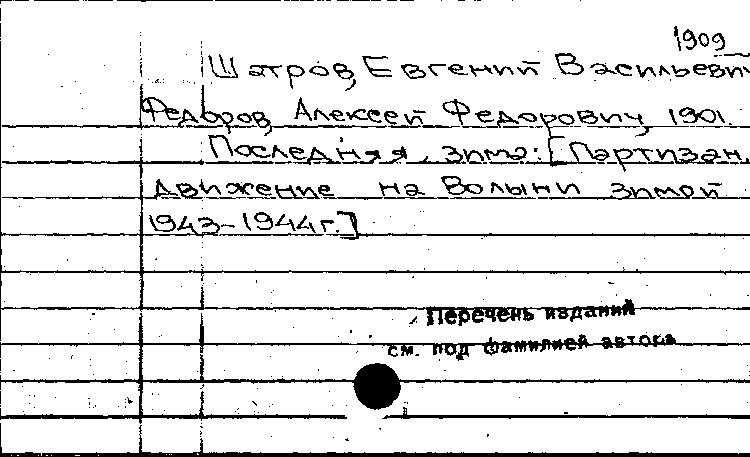 1909
Шатров, Евгений Васильеви
Федоров, Алексей Федорович, 1901.
Последняя зима: [Партизан.
движение на Волыни зимой
1943-1944 г.]
Перечень изданий
см. под фамилией автора